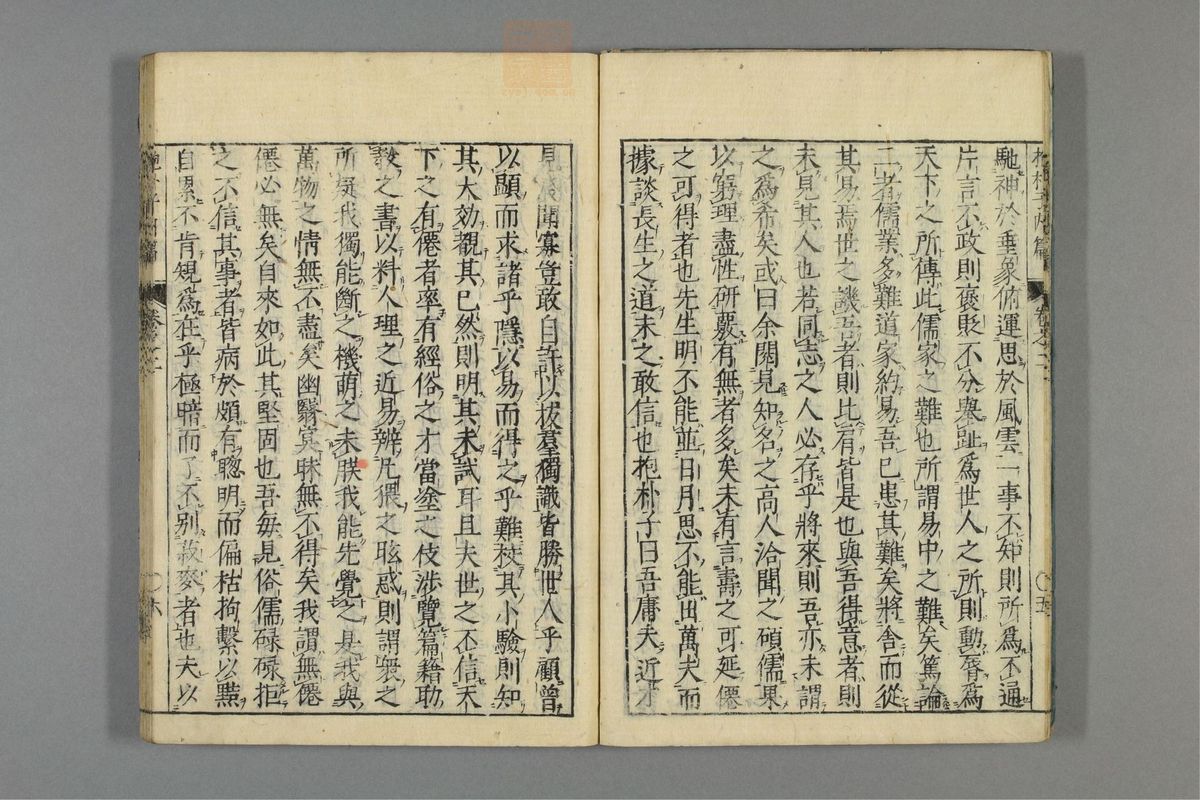 馳神於垂象俯運思於風雲一事不知則所爲不通
片言不政則褒貶不分舉趾爲世人之所則動唇爲
天下之所傳此儒家之難也所謂易中之難矣篤論
二者儒業多難道家約易吾已患其難矣將舍而從
其易焉世之譏吾者則比有皆是也與吾得意者則
未見其人也若同志之人必存乎將來則吾亦未謂
之爲希矣或曰余閱見知名之高人洽聞之碩儒果
以窮理盡性研覈有無者多矣未有言壽之可延僊
之可得者也先生明不能並日月思不能出萬夫而
據談長生之道未之敢信也抱朴子曰吾庸夫近才
見淺聞寡豈敢自許以拔羣獨識皆勝世人乎顧曾
以顯而求諸乎隱以易而得之乎難校其小驗則知
其大効觀其已然則明其未試耳且夫世之不信天
下之有僊者率有經俗之才當塗之伎涉覽篇籍助
教之書以料人理之近易辨凡猥之昡惑則謂衆之
所疑我獨能斷之機萌之未朕我能先覺之是我與
萬物之情無不盡矣幽翳冥昧無不得矣我謂無僊
僊必無矣自來如此其堅固也吾每見俗儒碌碌拒
之不信其事者皆病於頗有聰明而偏枯拘繫以黠
自累不肯規爲在乎極暗而了不別菽麥者也夫以